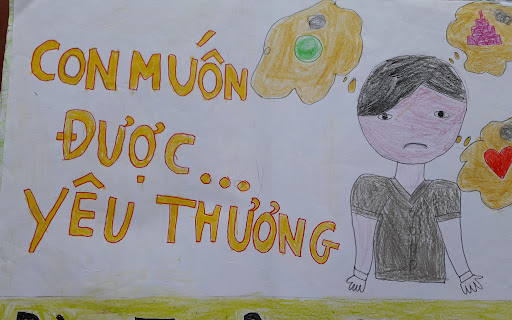 CON MUỐN
ĐƯỢC...
YÊU THƯƠNG